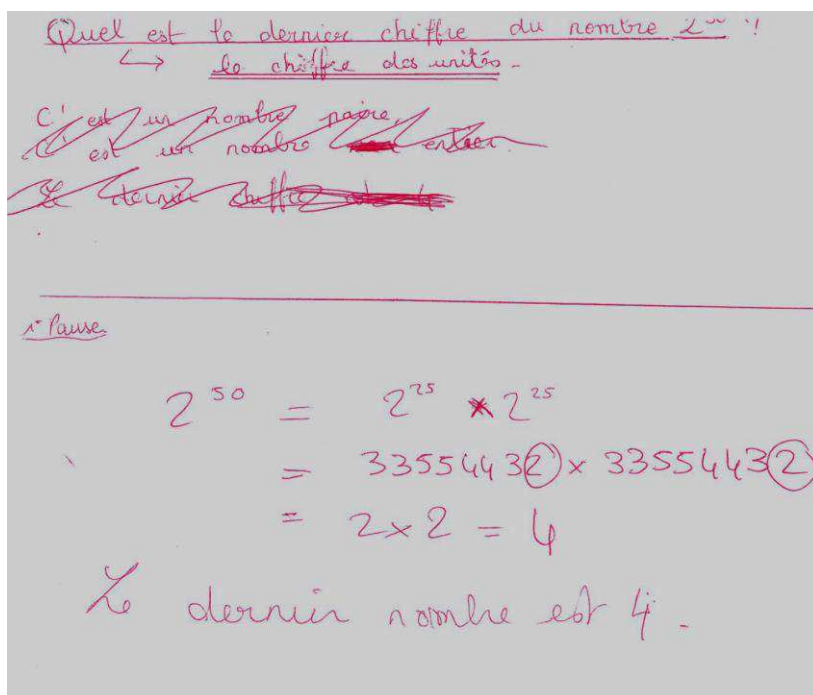 Quel est le dernier chiffre du nombre ?
↳ le chiffre des unités.
C'est un nombre paire.
C'est un nombre entier.
Le dernier chiffre
1° Pause
2^50 = 2^25 * 2^25
= 33554432 x 33554432
= 2 x 2 = 4
Le dernier nombre est 4.